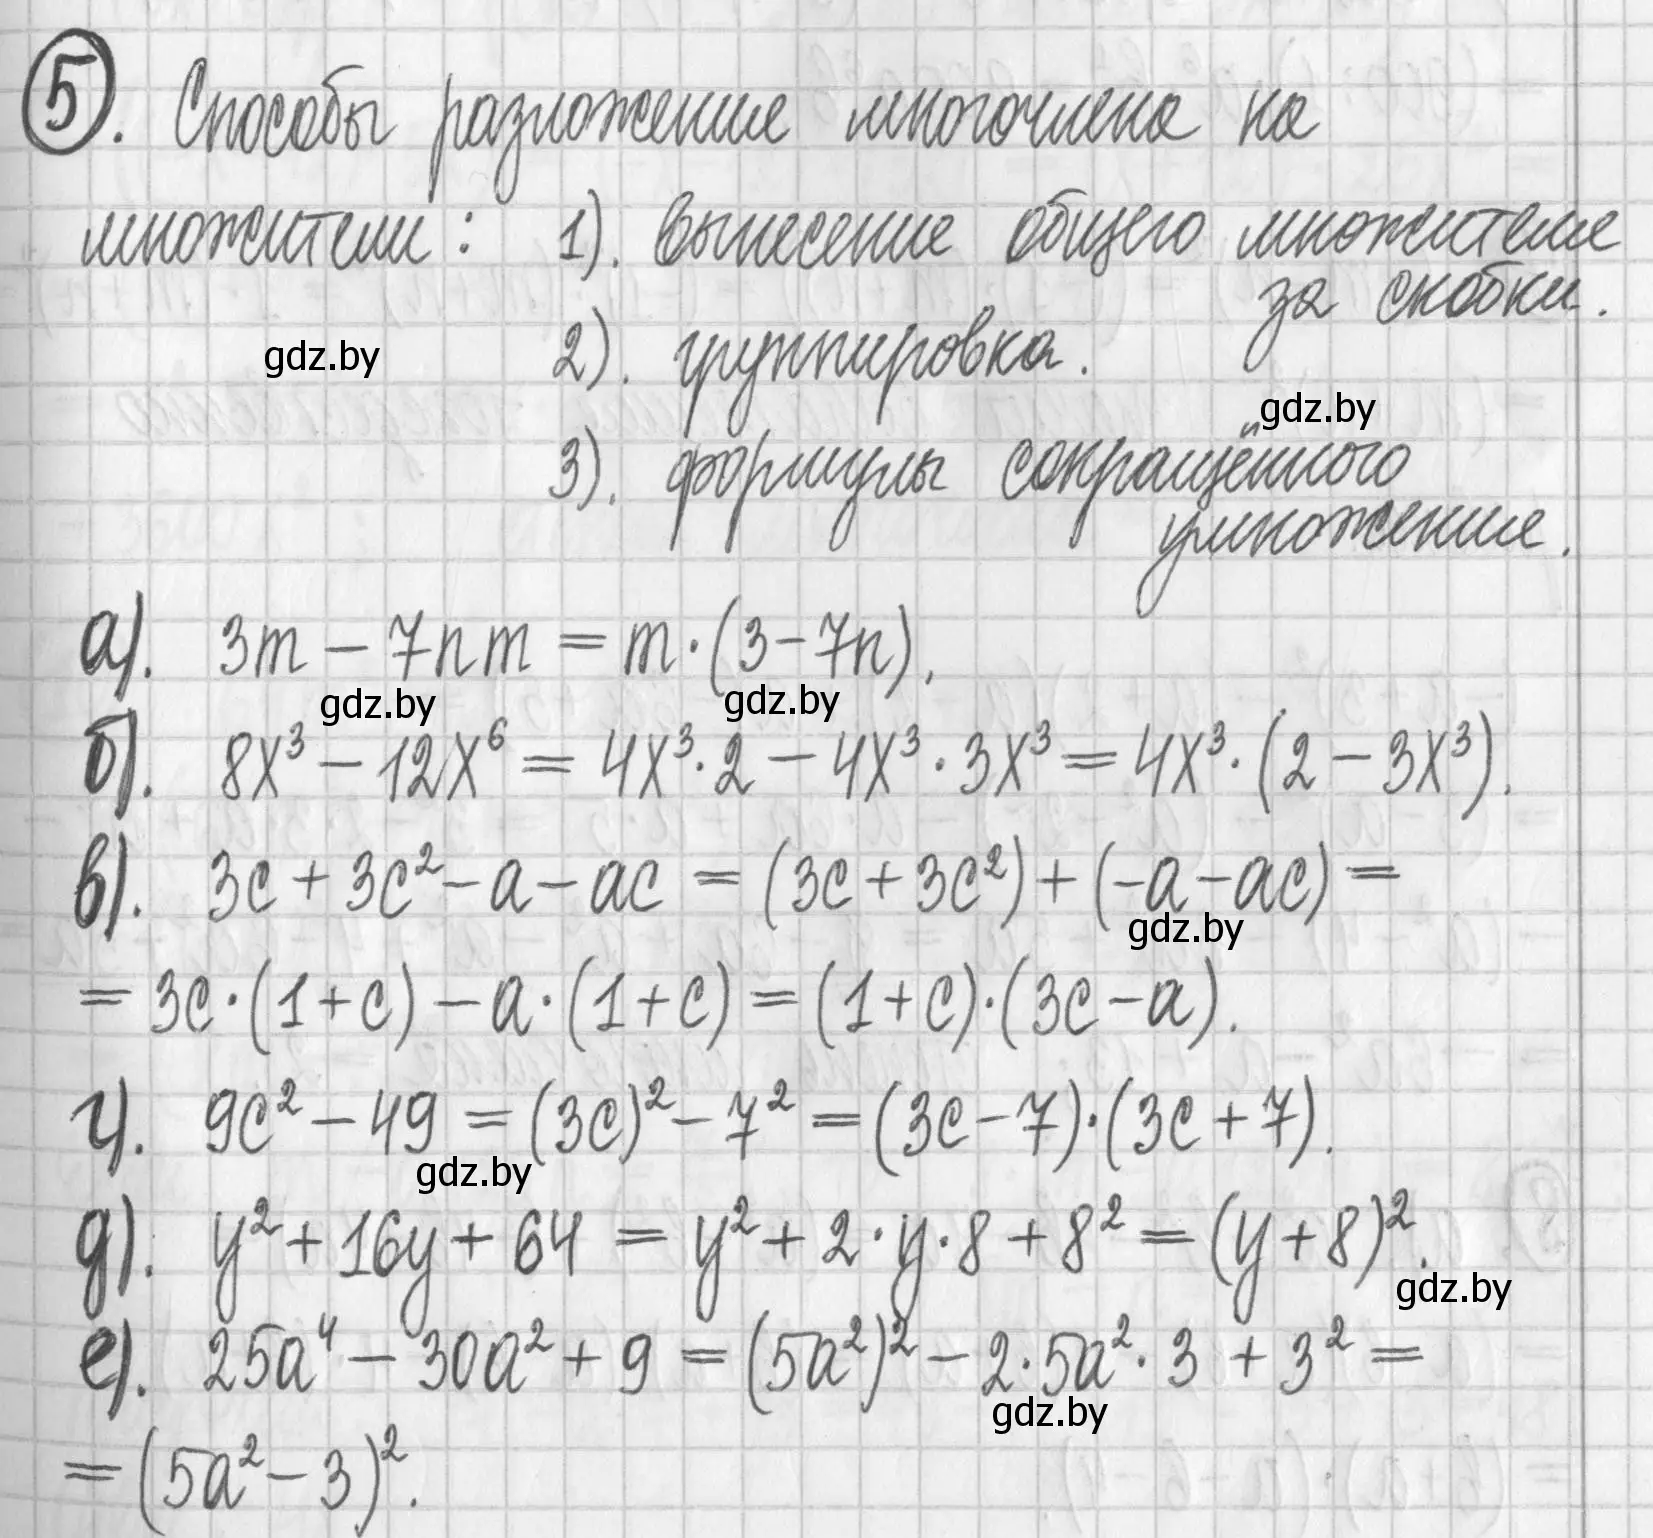 5. Способы разложения многочлена на
множители: 1). вынесение общего множителя
за скобки.
gdz.by 2). группировка.
gdz.by
3). формулы сокращённого
умножения.
а). 3m - 7nm = m·(3-7n).
gdz.by gdz.by
б). 8x³ - 12x⁶ = 4x³·2 - 4x³·3x³ = 4x³·(2 - 3x³).
в). 3c + 3c² - a - ac = (3c + 3c²) + (-a - ac) =
gdz.by
= 3c·(1+c) - a·(1+c) = (1+c)·(3c - a).
г). 9c² - 49 = (3c)² - 7² = (3c - 7)·(3c + 7).
gdz.by
д). y² + 16y + 64 = y² + 2·y·8 + 8² = (y + 8)².
gdz.by
е). 25a⁴ - 30a² + 9 = (5a²)² - 2·5a²·3 + 3² =
gdz.by
= (5a² - 3)².